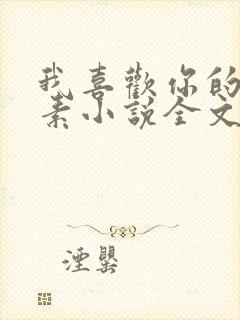 我喜歡你的
素小說全文
湮罌